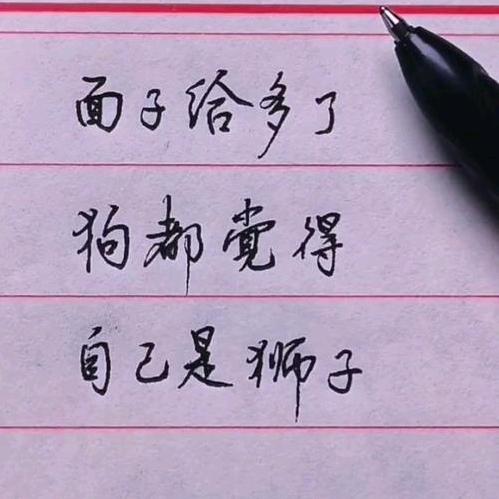 面子给多了
狗都觉得
自己是狮子